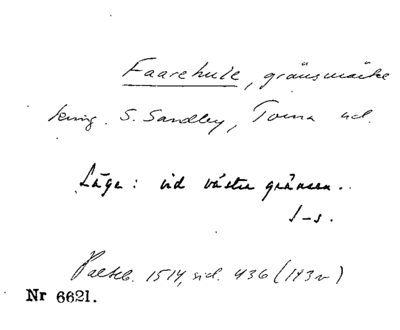 Faarehule, gränsmärke
kring S. Sandby, Torna hd.
Läge: vid västra gränsen.
S-s.
Palteb. 1514, sid. 436 (193v)
Nr 6621.